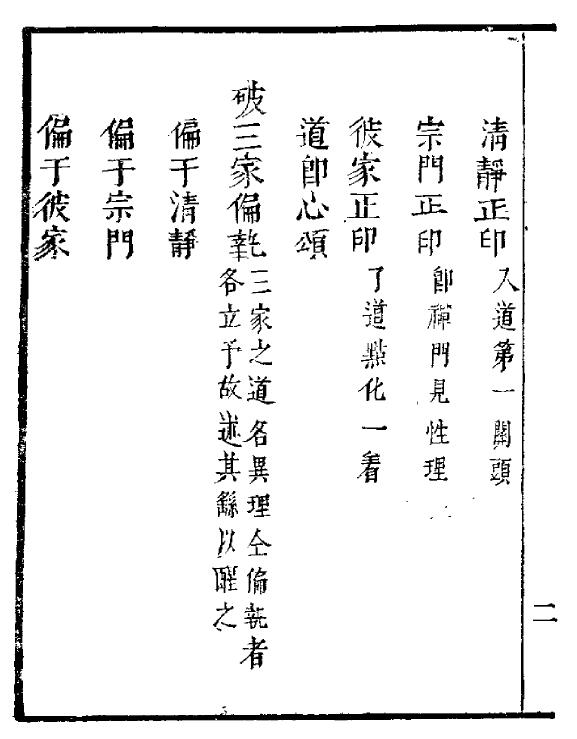 清靜正印 入道第一關頭
宗門正印 卽禪門見性理
彼家正印 了道點化一着
道卽心頌
破三家偏執 三家之道名異理仝偏執者
各立予故述其繇以醒之
偏于清靜
偏于宗門
偏于彼家
二